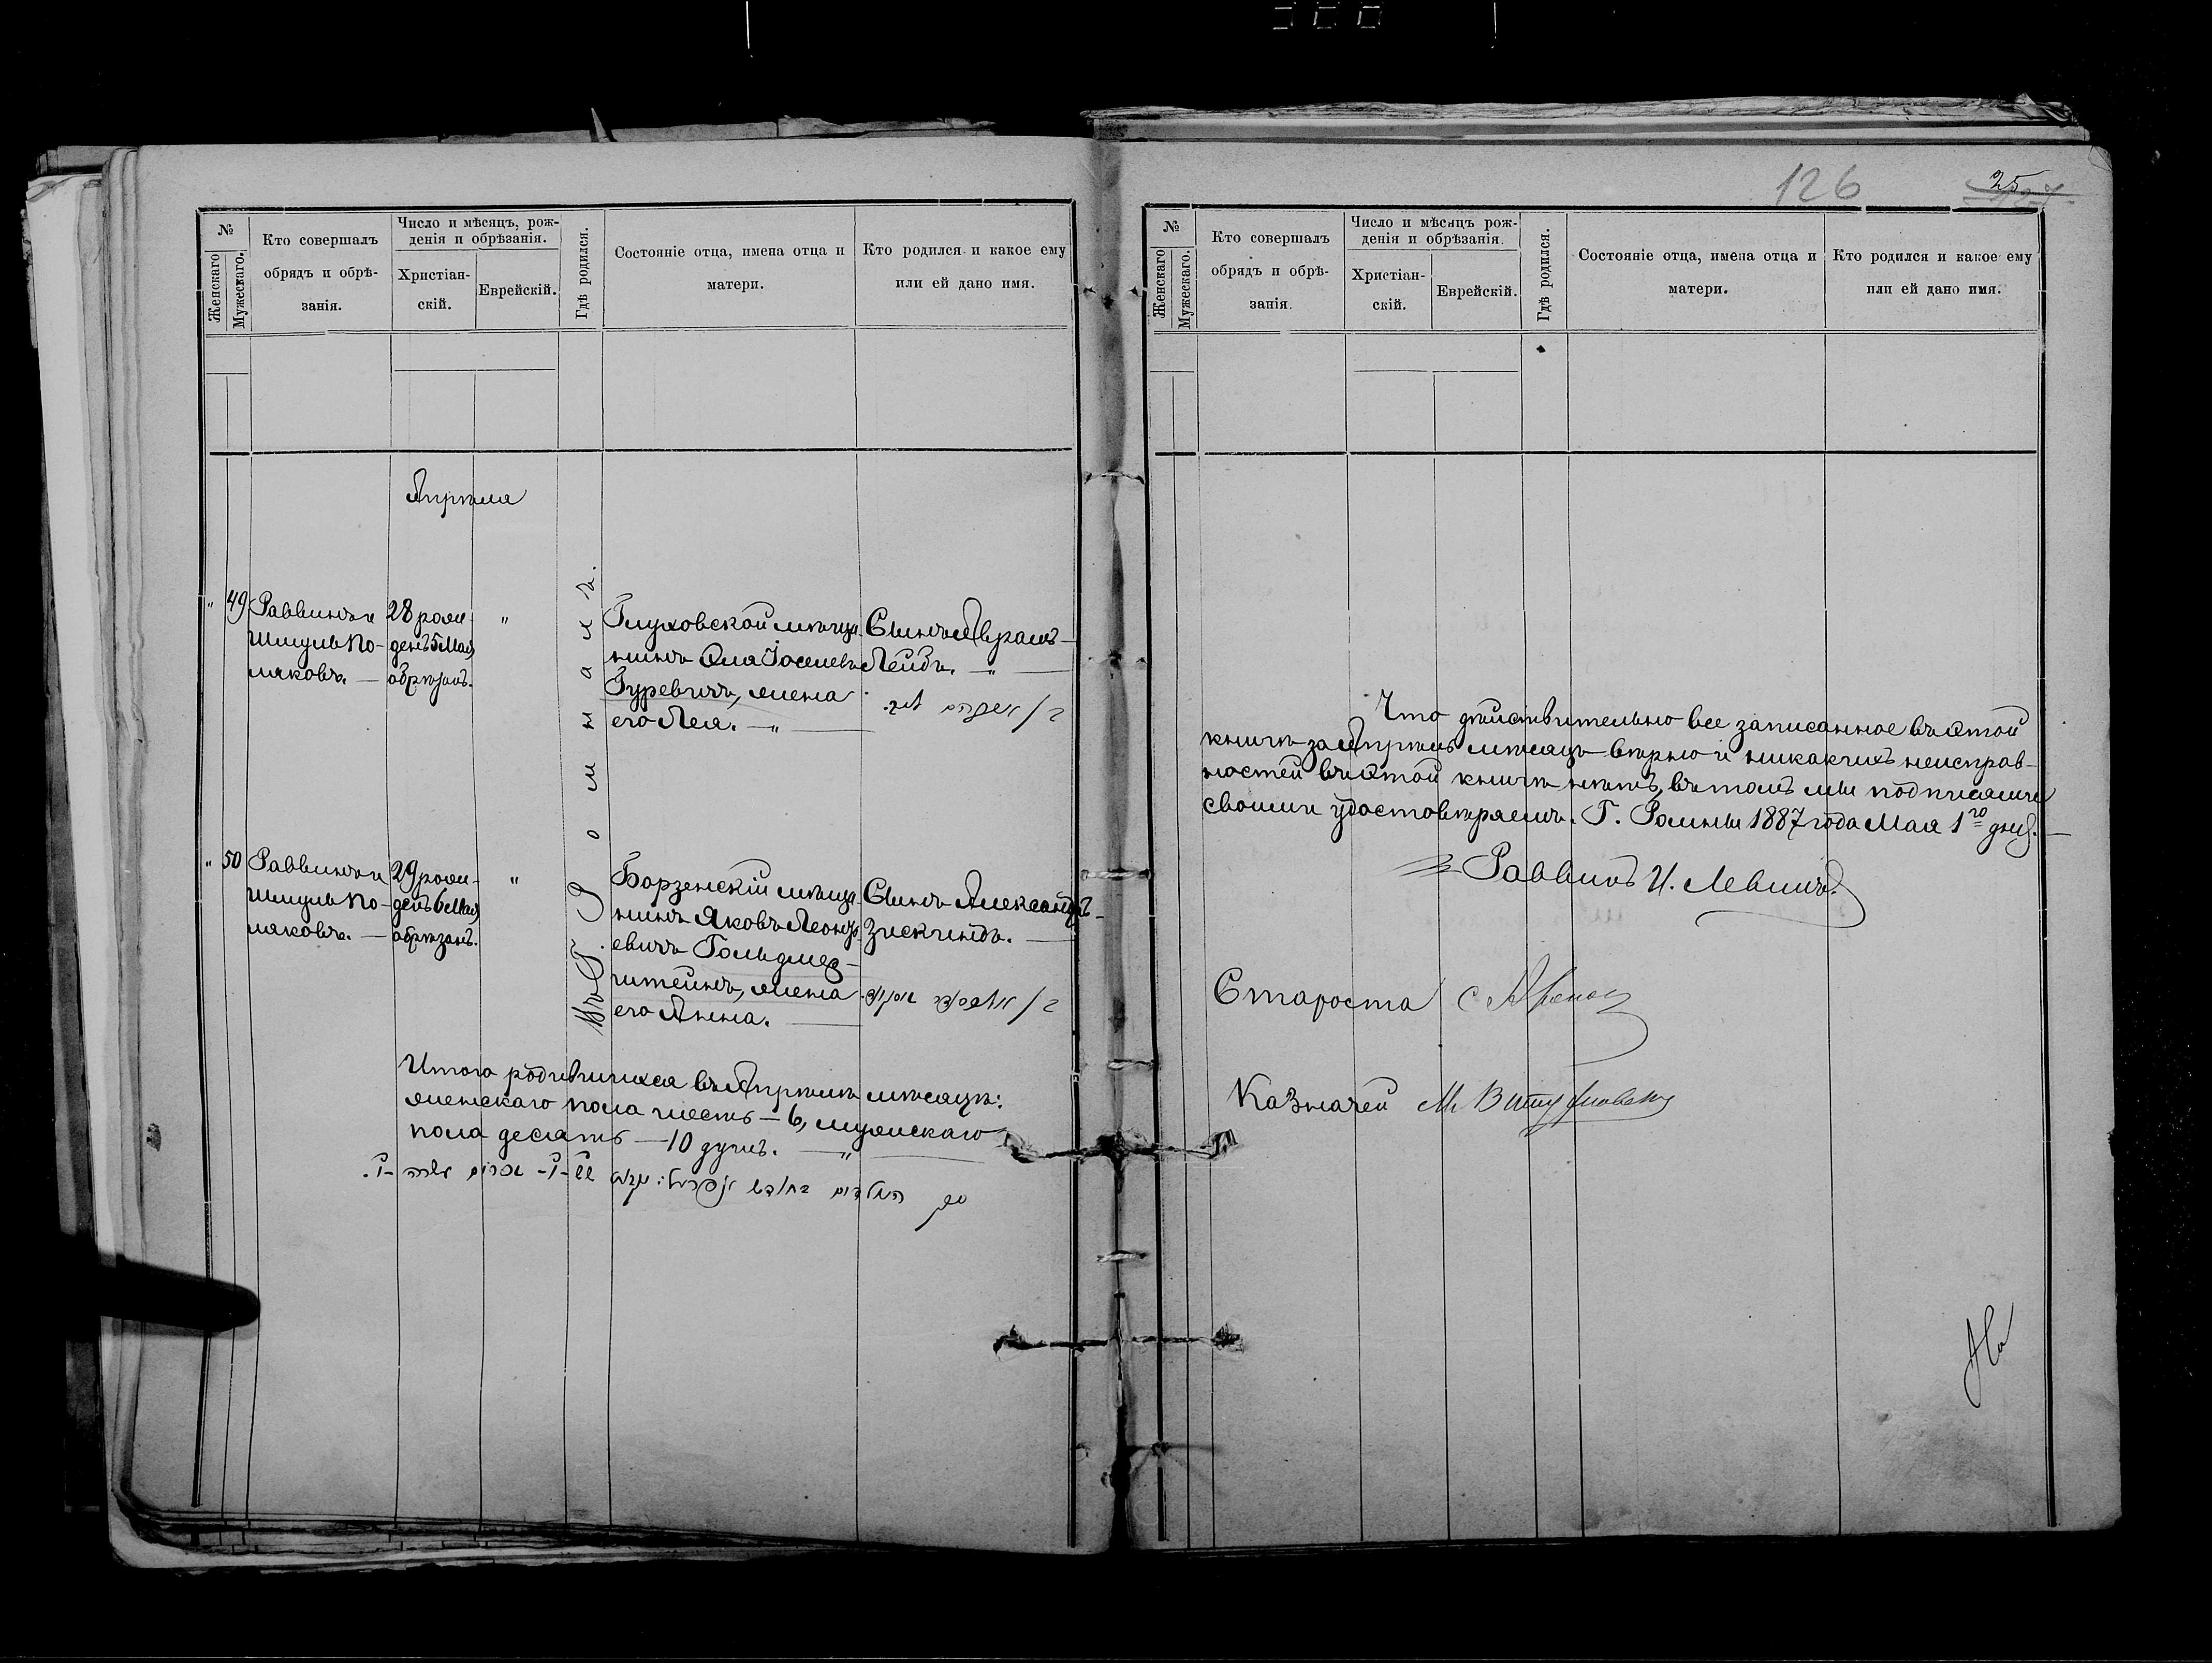 126
25
№
Женскаго
Мужескаго.
Кто совершалъ
обрядъ и обрѣ-
занія.
Число и мѣсяцъ, рож-
денія и обрѣзанія.
Христіан-
скій.
Еврейскій.
Гдѣ родился.
Состояніе отца, имена отца и
матери.
Кто родился и какое ему
или ей дано имя.
Апрѣля
" 49
Раввинъ и
Шмуль По-
ляковъ. —
28 рож-
денъ 5 Мая
обрѣзанъ.
"
Въ Г. Ромнахъ.
Глуховской мѣща-
нинъ Эля Іоселевъ
Гуревичъ, жена
его Лея. — "
Сынъ Аврамъ —
Лейбъ. — "
" 50
Раввинъ и
Шмуль По-
ляковъ. —
29 рож-
денъ 6 Мая
обрѣзанъ.
"
Борзенскій мѣща-
нинъ Яковъ Леонть-
евичъ Гольдмер-
штейнъ, жена
его Анна.
Сынъ Александръ —
Зискиндъ. —
Итого родившихся въ Апрѣлѣ мѣсяцѣ:
женскаго пола шесть — 6, мужскаго
пола десять — 10 душъ. — "
№
Женскаго
Мужескаго.
Кто совершалъ
обрядъ и обрѣ-
занія.
Число и мѣсяцъ рож-
денія и обрѣзанія.
Христіан-
скій.
Еврейскій.
Гдѣ родился.
Состояніе отца, имена отца и
матери.
Кто родился и какое ему
или ей дано имя.
Что дѣйствительно все записанное въ этой
книгѣ за Апрѣль мѣсяцъ вѣрно и никакихъ неисправ-
ностей въ этой книгѣ нѣтъ, въ томъ мы подписями
своими удостовѣряемъ. Г. Ромны 1887 года Мая 1го дня. —
Раввинъ И. Левинъ
Староста
Казначей М.